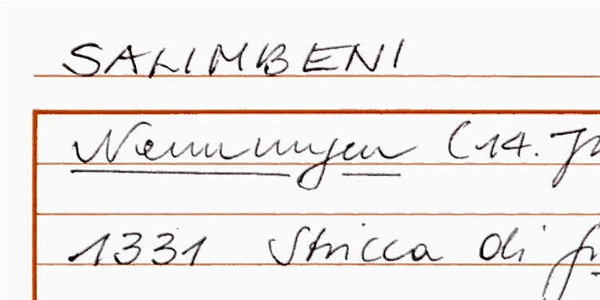 SALIMBENI
Nennungen (14. J
1331 Stricca di